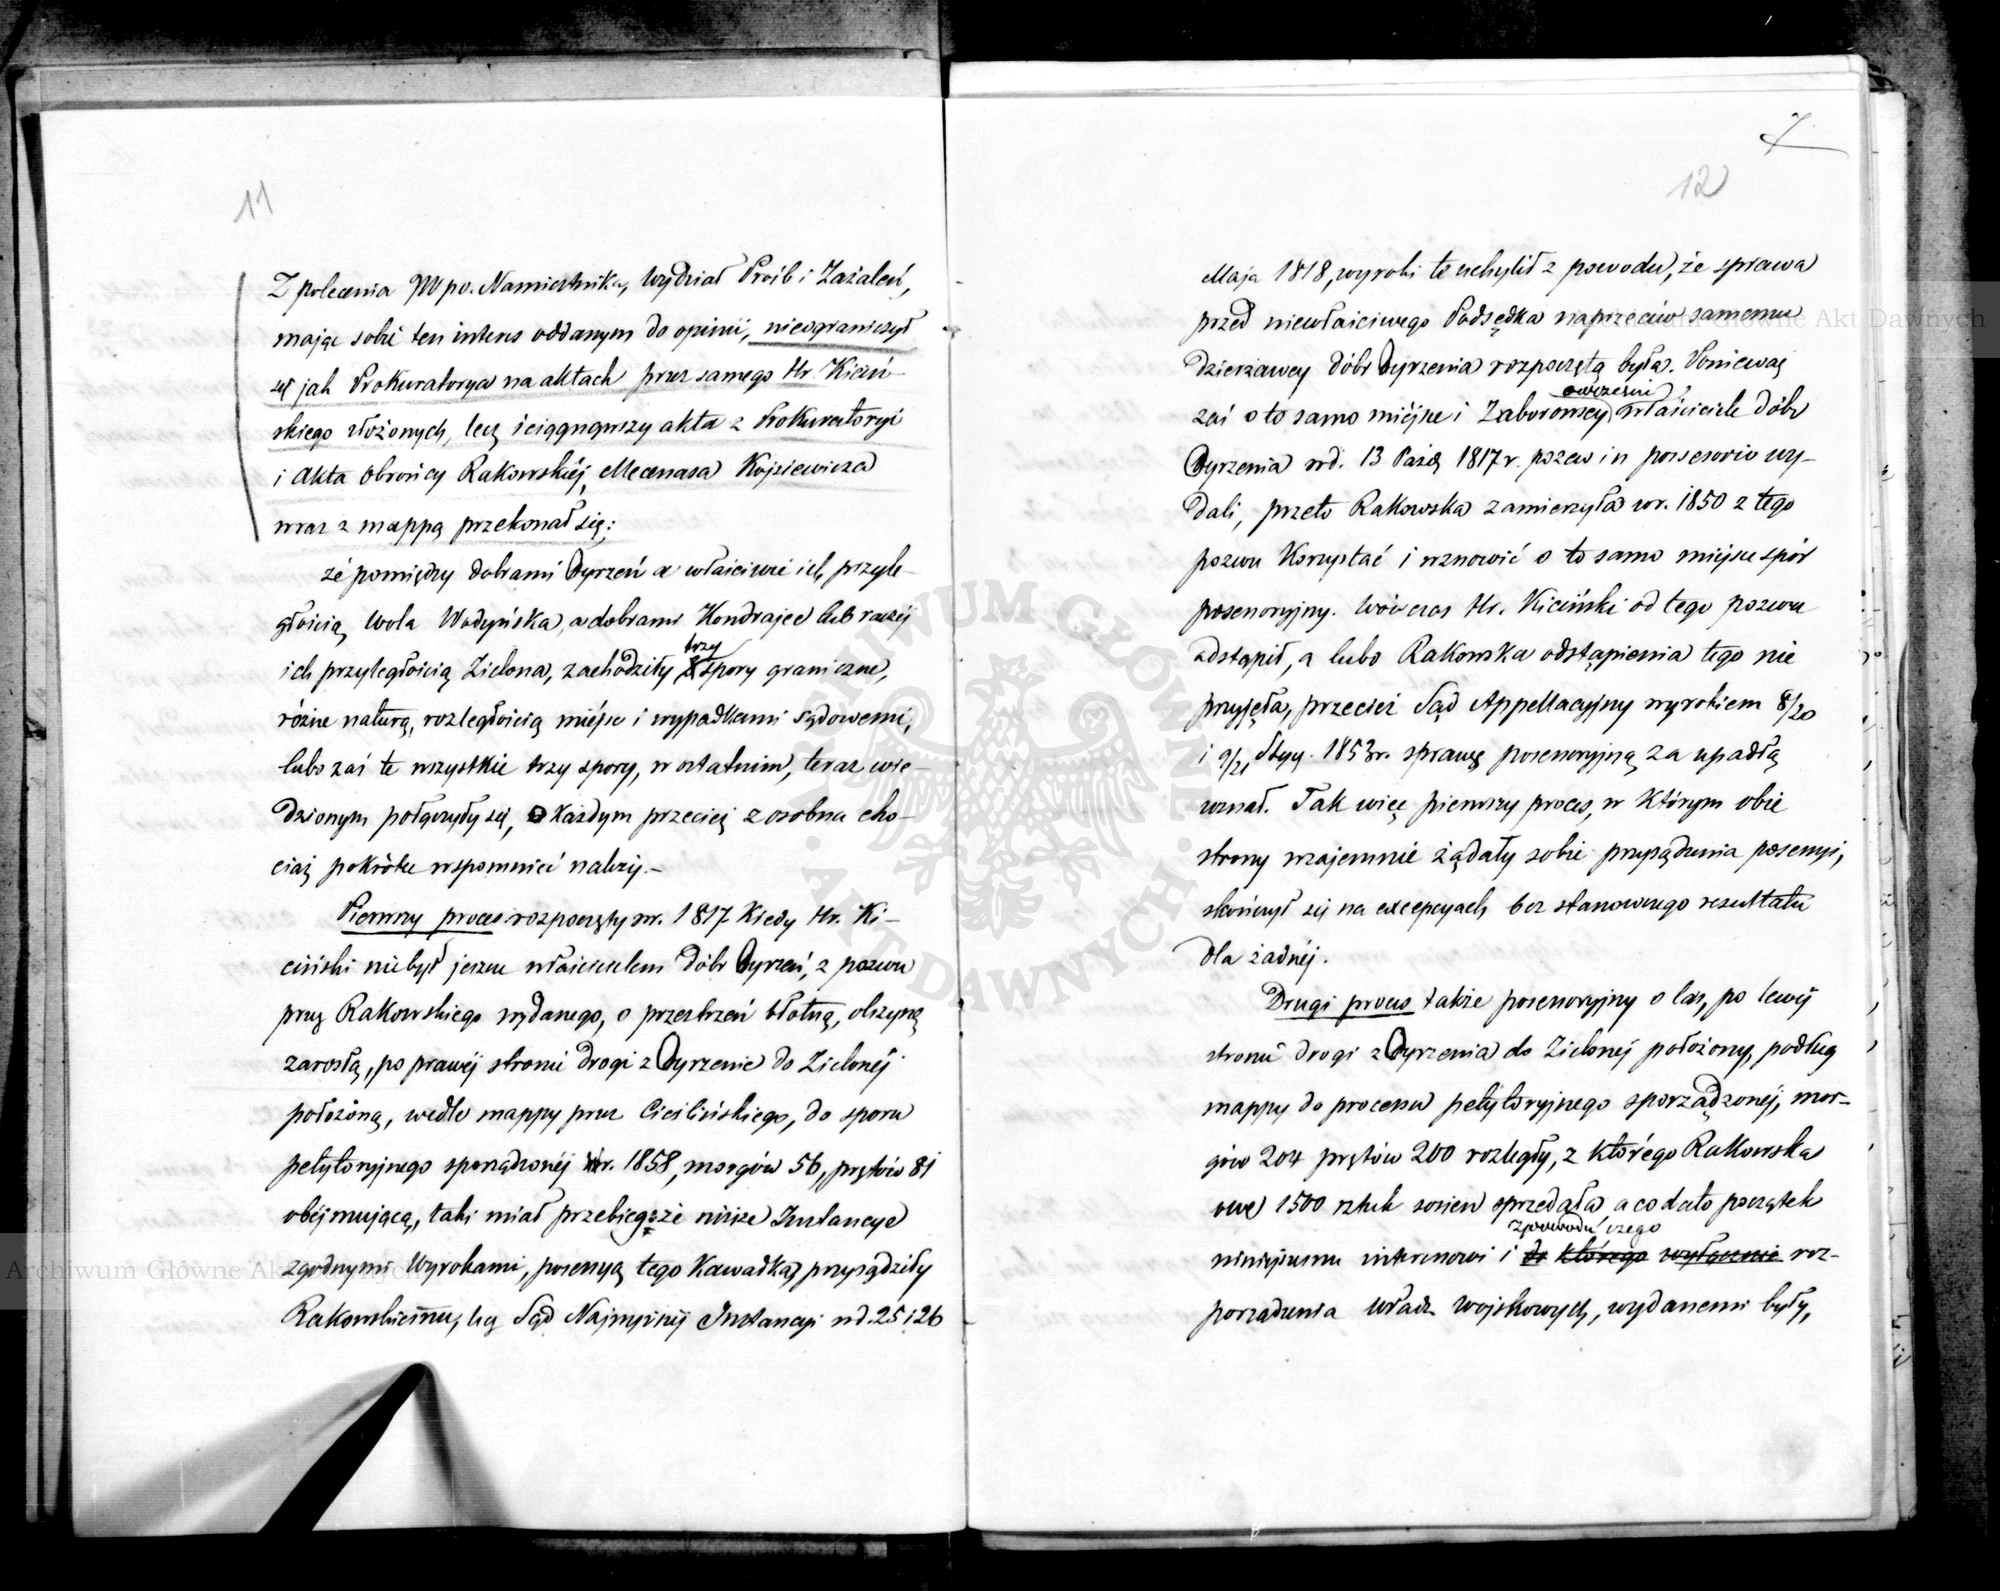 11
Z polecenia JW po. Namiestnika, Wydział Próśb i Zażaleń,
mając sobie ten interes oddanym do opinii, nieograniczył
się jak Prokuratorya na aktach przez samego Hr. Kiciń-
skiego złożonych, lecz ściągnąwszy akta z Prokuratoryi
i Akta Obrońcy Rakowskiéj, Mecenasa
wraz z mappą przekonał się:
że pomiędzy dobrami Dyrzeń a właściwie ich przyle-
głością Wola Wodyńska, a dobrami Kondrajec lub raczéj
ich przyległością Zielona, zachodziły trzy spory graniczne,
różne naturą, rozległością miejsc i wypadkami sądowemi,
lubo zaś te wszystkie trzy spory, w ostatnim, teraz wie-
dzionym połączyły się, o każdym przecież z osobna cho-
ciaż pokrótce wspomnieć należy.-
Pierwszy proces rozpoczęty w r. 1817 kiedy Hr. Ki-
ciński niebył jeszcze właścicielem dóbr Dyrzeń, z pozwu
przez Rakowskiego wydanego, o przestrzeń błotną, olszyną
zarosłą, po prawéj stronie drogi z Dyrzenia do Zielonéj
położoną, wedle mappy przez Cicilińskiego, do sporu
petytoryjnego sporządzonéj w r. 1858, morgów 56, prętów 81
obéjmującą, taki miał przebieg: że niższe Instancye
zgodnymi Wyrokami, posesyą tego kawałka, przysądziły
Rakowskiemu, lecz Sąd Najwyższéj Instancyi w d. 25 i 26
12
Maja 1818, wyroki te uchylił z powodu, że sprawa
przed niewłaściwego Podsędka naprzeciw samemu
dzierżawcy dóbr Dyrzenia rozpoczętą była. Ponieważ
owcześni
zaś o to samo miéjsce i Zaborowscy właściciele dóbr
Dyrzenia w d. 13 Paźdz 1817 r. pozew in possesorio wy-
dali, przeto Rakowska zamierzyła w r. 1850 z tego
pozwu korzystać i wznowić o to samo miejsce spór
posesoryjny. Wówczas Hr. Kiciński od tego pozwu
odstąpił, a lubo Rakowska odstąpienia tego nie
przyjęła, przecież Sąd Appellacyjny wyrokiem 8/20
i 9/21 Stycz. 1853 r. sprawę posesoryjną za upadłą
uznał. Tak więc pierwszy proces, w którym obie
strony wzajemnie żądały sobie przysądzenia posesyi,
skończył się na excepcyach bez stanowczego rezultatu
dla żadnéj.
Drugi proces także posesoryjny o las, po lewéj
stronie drogi z Dyrzenia do Zielonéj położony, podług
mappy do procesu petytoryjnego sporządzonéj, mor-
gów 204 prętów 200 rozległy, z którego Rakowska
owe 1500 sztuk sosien sprzedała, a co dało początek
z powodu czego
niniejszemu interesowi i do którego wyłącznie roz-
porządzenia Władz Wojskowych, wydanemi były,
Archiwum Główne Akt Dawnych